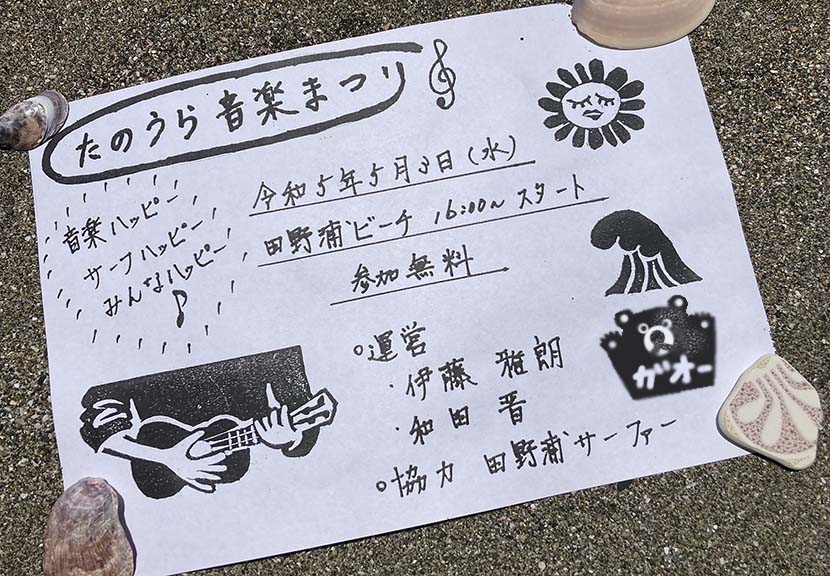 たのうら音楽まつり
音楽ハッピー
サーフハッピー
みんなハッピー
令和5年5月3日(水)
田野浦ビーチ 16:00~スタート
参加無料
○運営
・伊藤 雅朗
・和田 晋
○協力 田野浦サーファー
がオー